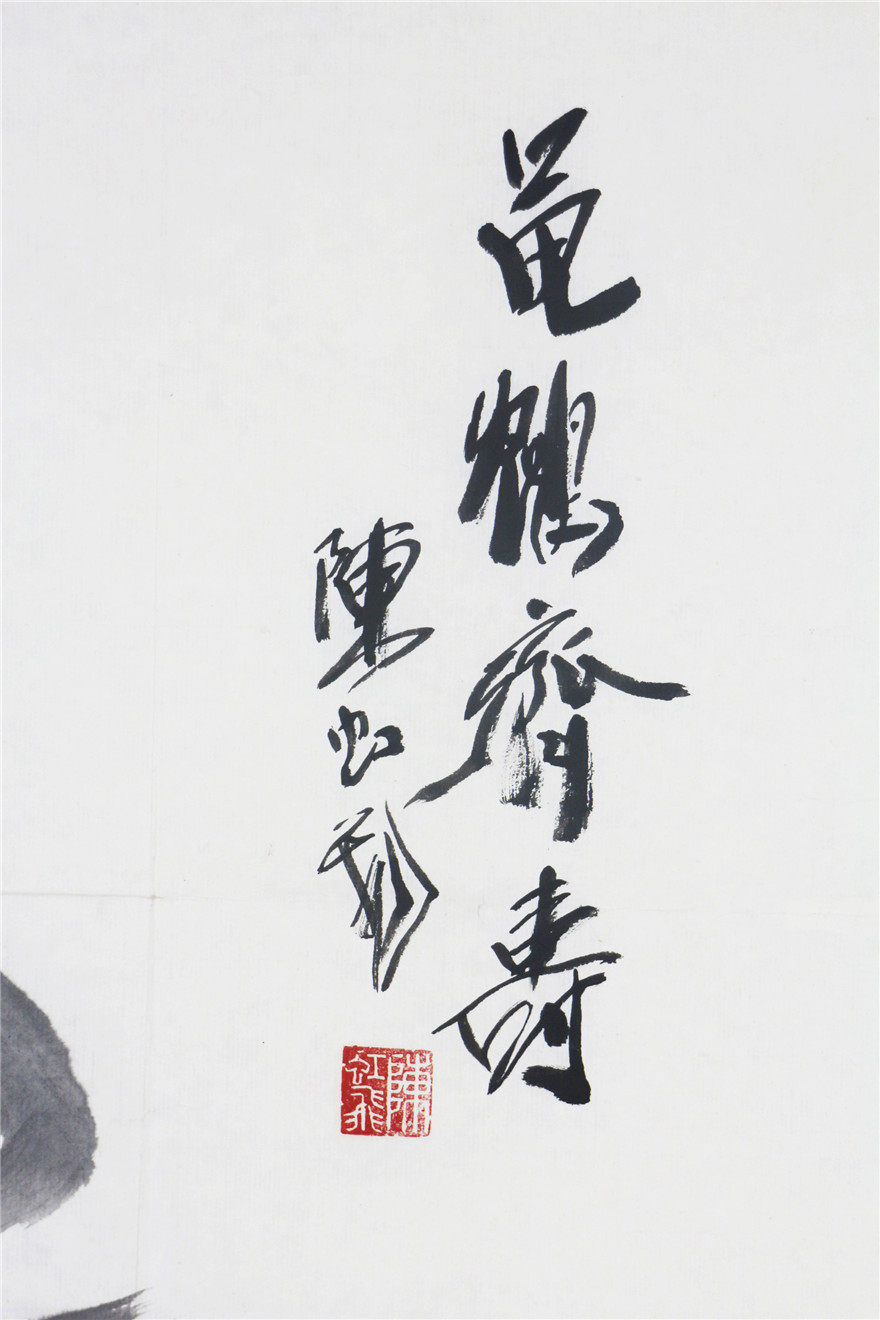 龜鶴齊壽
陳虹飛
陳虹飛